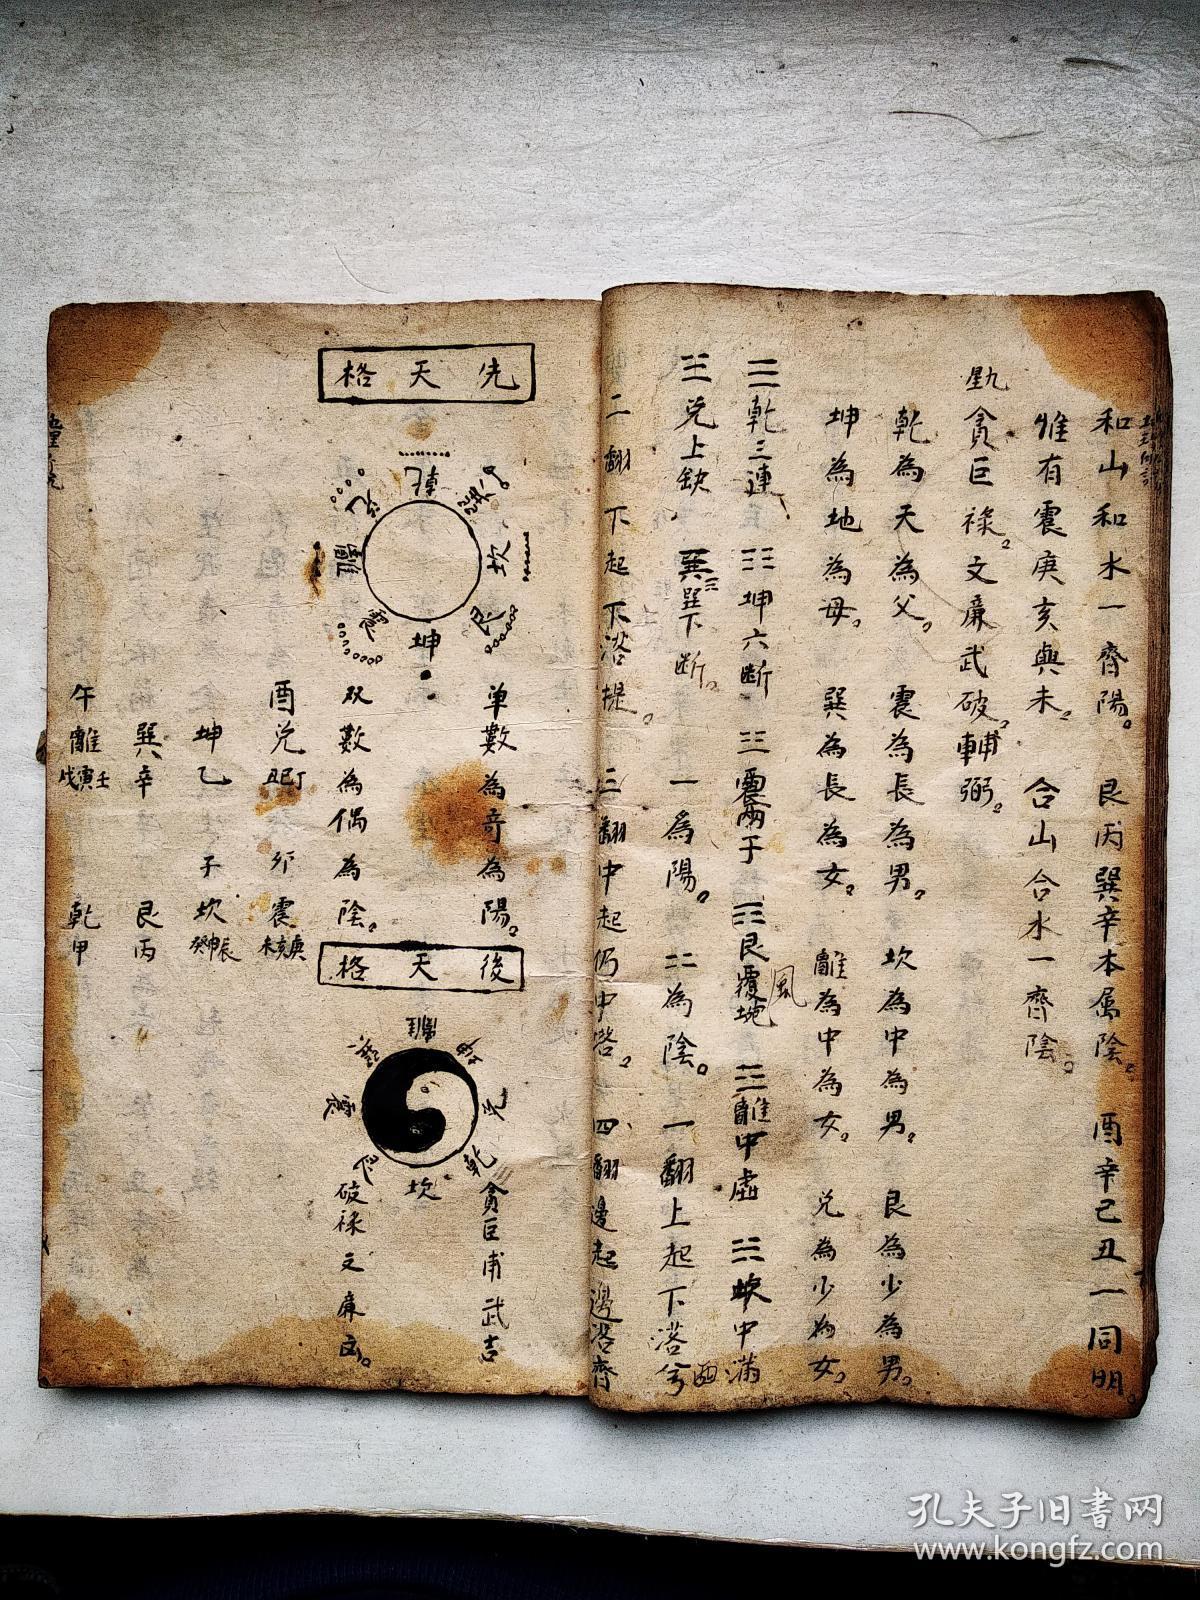 和山和水一齊陽。艮丙巽辛本属陰。酉辛己丑一同明。
惟有震庚亥與未。合山合水一齊陰。
貪巨祿。文廉武破。輔弼。
乾為天為父。震為長為男。坎為中為男。艮為少為男。
坤為地為母。巽為長為女。離為中為女。兑為少為女。
☰乾三連 ☷坤六断 ☳震兩于 ☶艮覆埦 ☲離中虚 ☵坎中滿
☱兑上缺 ☴巽下断。一為陽。二為陰。一翻上起下落兮
風
二翻下起下落提。三翻中起仍中落。四翻邊起邊落齊
先天格
乾
兑
離
震
坤
艮
坎
巽
单數為奇為陽。
双數為偶為陰。
酉兑丁巳丑 夘震庚亥未
坤乙 子坎
巽辛 艮丙
午離壬寅戌 乾甲
後天格
離
坤
兑
乾
坎
艮
震
巽
貪巨甫武吉
破祿文廉凶。
孔夫子旧书网
www.kongfz.com